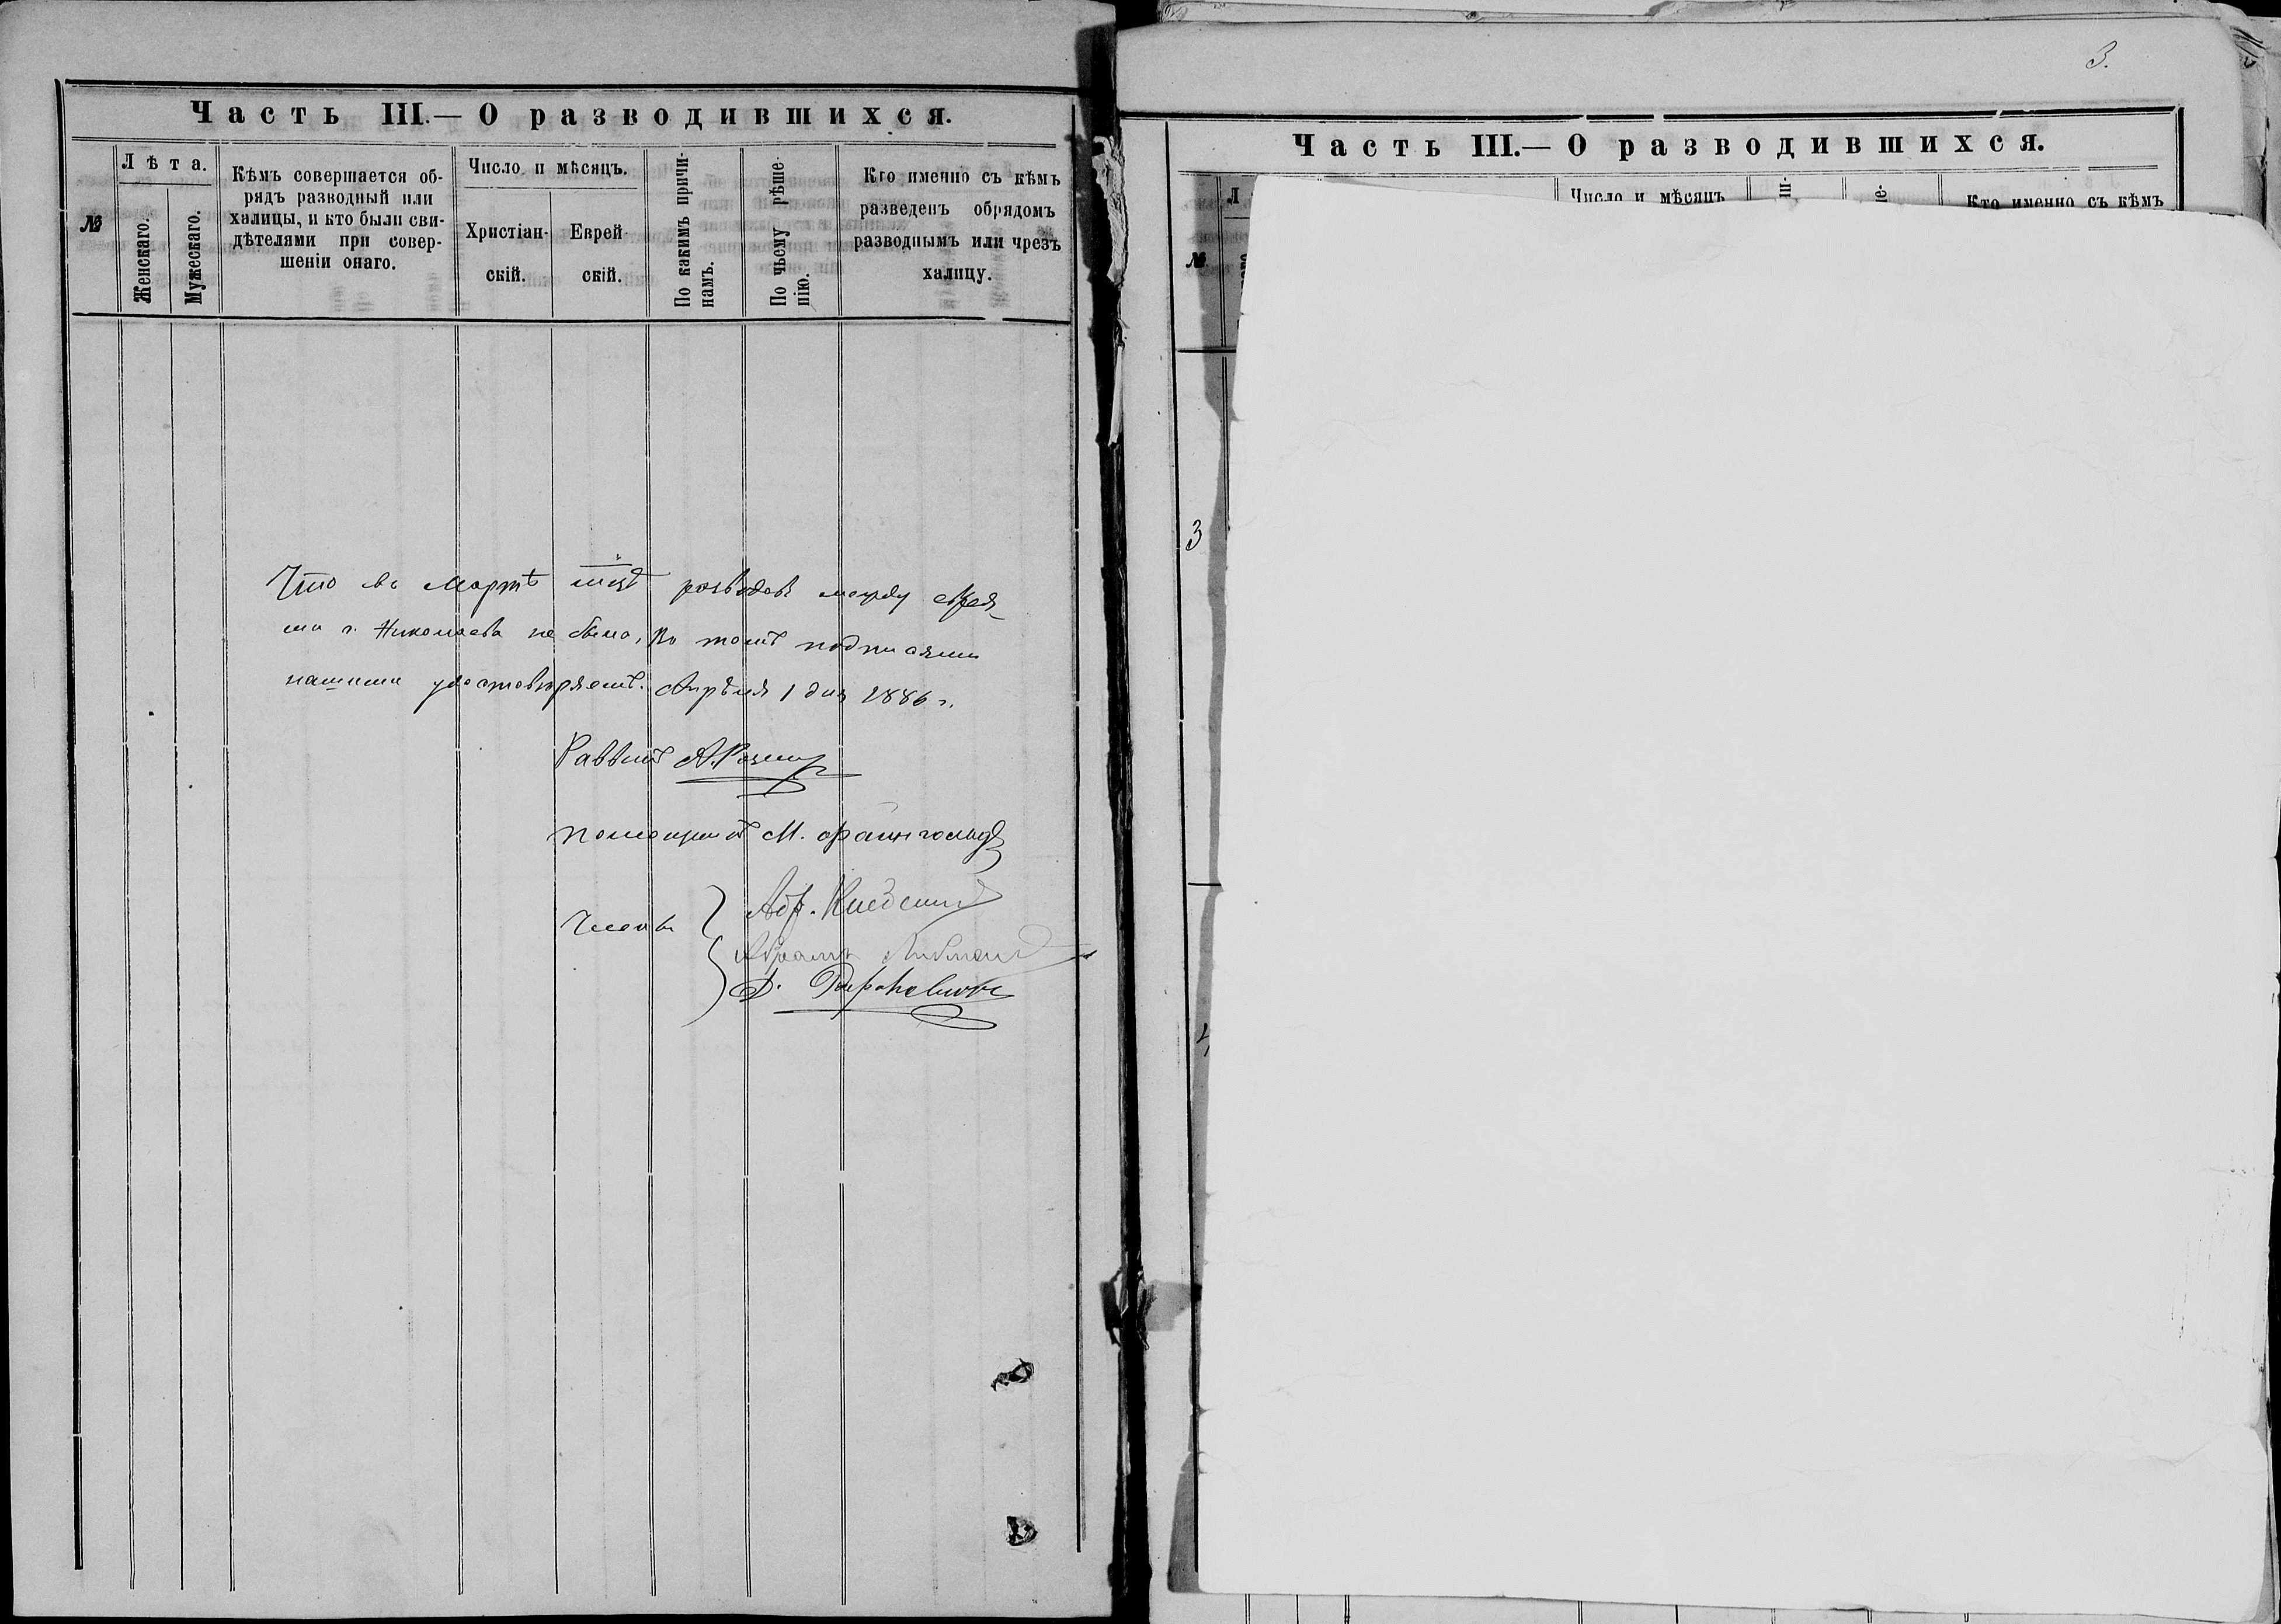 Часть III.— О разводившихся.
№
Лѣта.
Женскаго.
Мужескаго.
Кѣмъ совершается об-
рядъ разводный или
халицы, и кто были сви-
дѣтелями при совер-
шеніи онаго.
Число и мѣсяцъ.
Христіан-
скій.
Еврей-
скій.
По какимъ причи-
намъ.
По чьему рѣше-
нію.
Кто именно съ кѣмъ
разведенъ обрядомъ
разводнымъ или чрезъ
халицу.
Что въ Мартѣ мцѣ разводовъ между евре-
ми г. Николаева не было, въ томъ подписями
нашими удостовѣряемъ. Апрѣля 1 дня 1886 г.
Раввинъ А.
помощникъ М. Файнгольдъ
Члены
Абр.
Абрамъ
Д.
3.
Часть III.— О разводившихся.
№
Л
Число и мѣсяцъ
Кто именно съ кѣмъ
3
4